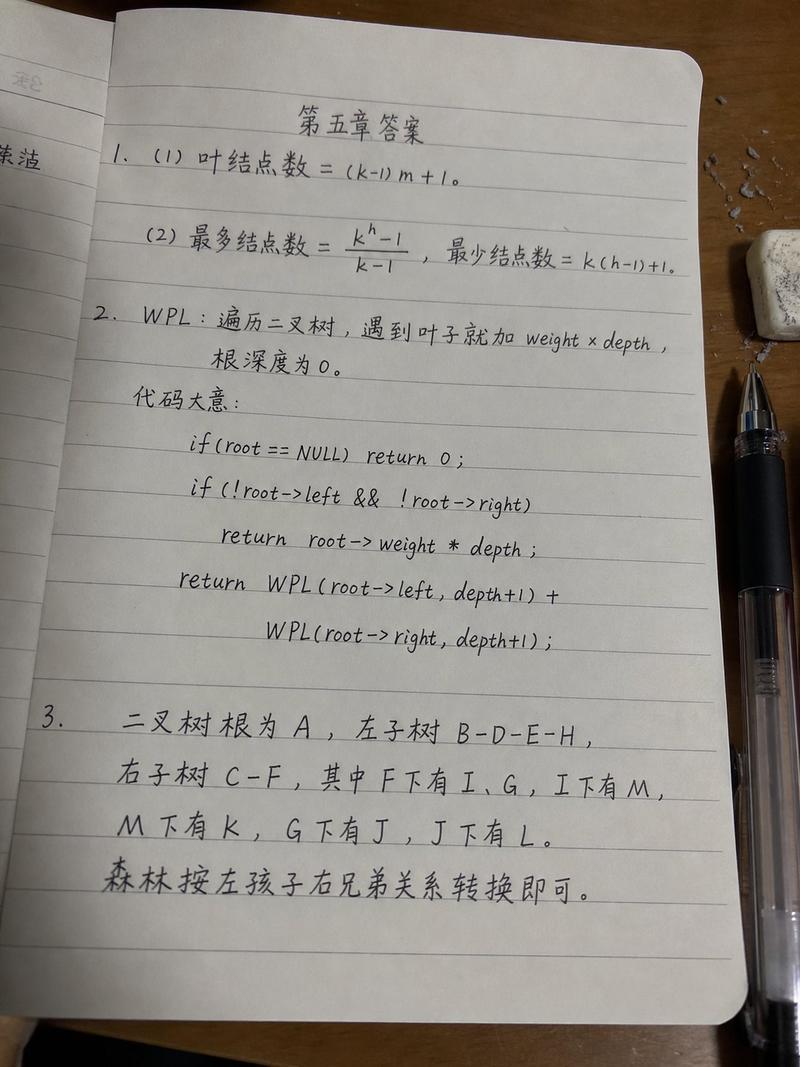 第五章答案
1. (1) 叶结点数 = (k-1)m+1。
(2) 最多结点数 = (k^h-1)/(k-1) , 最少结点数 = k(h-1)+1。
2. WPL: 遍历二叉树, 遇到叶子就加 weight × depth,
根深度为0。
代码大意:
if(root == NULL) return 0;
if (!root->left && !root->right)
return root->weight * depth;
return WPL(root->left, depth+1) +
WPL(root->right, depth+1);
3. 二叉树根为 A, 左子树 B-D-E-H,
右子树 C-F, 其中 F下有 I、G, I下有 M,
M 下有 K, G 下有 J, J 下有 L。
森林按左孩子右兄弟关系转换即可。